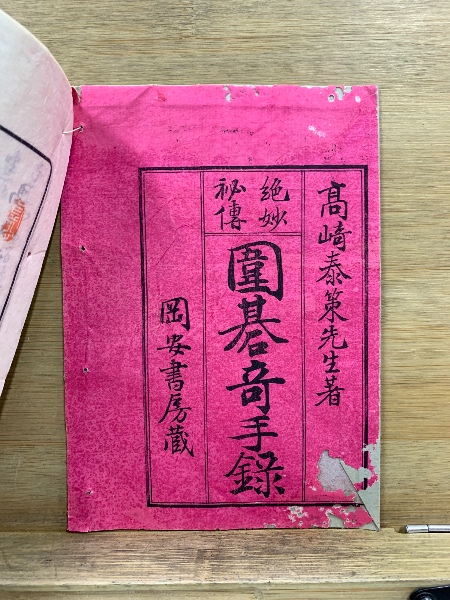 髙﨑泰策先生著
絶妙
秘傳
圍碁竒手錄
岡安書房藏